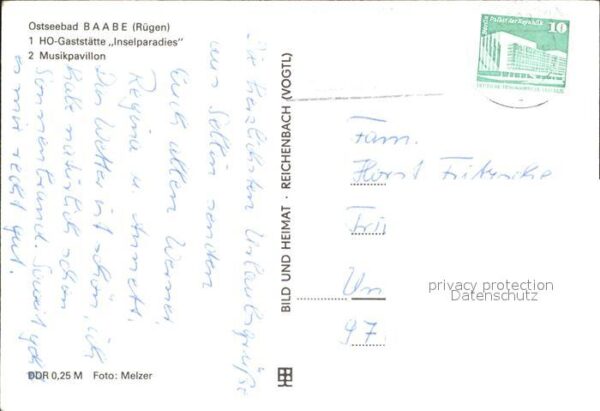 Ostseebad BAABE (Rügen)
1 HO-Gaststätte „Inselparadies"
2 Musikpavillon
Die herzlichsten Urlaubsgrüße
aus Sellin senden
Euch allen Werner
Regina u. Annett.
Das Wetter ist schön, ich
habe natürlich schon
Sonnenbrand. Soweit geht
es mir recht gut.
DDR 0,25 M Foto: Melzer
BILD UND HEIMAT · REICHENBACH (VOGTL)
Berlin Palast der Republik
10
DEUTSCHE DEMOKRATISCHE REPUBLIK
Fam.
Horst Fritzsche
Un
97
privacy protection
Datenschutz